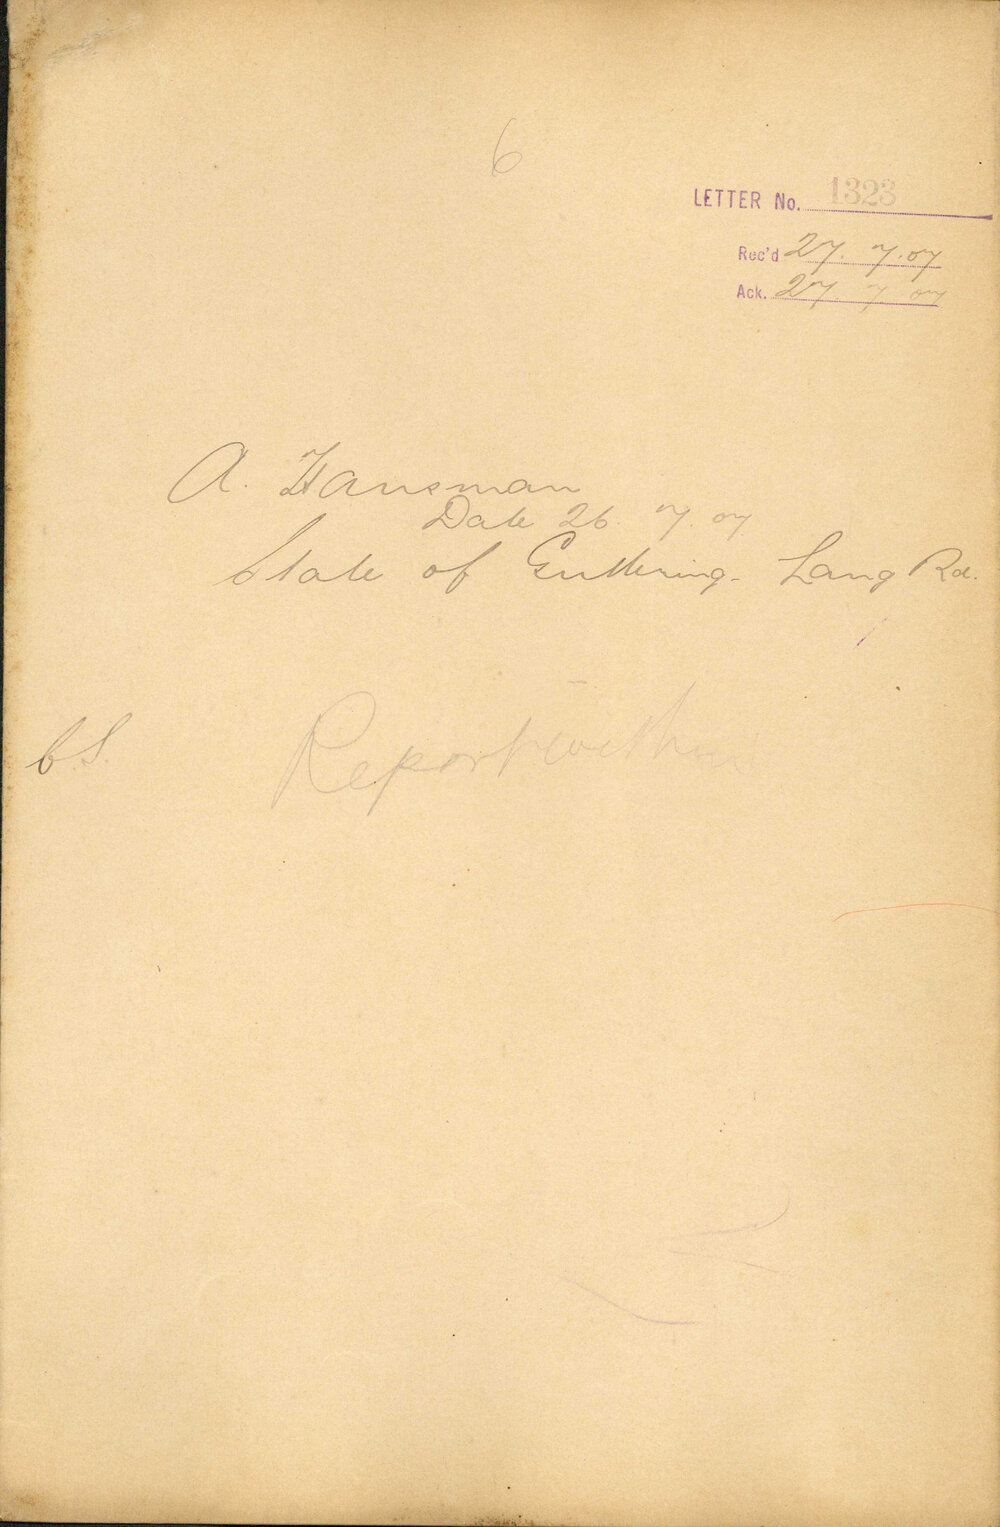 6
LETTER No. 1323
Rec'd 27. 7. 07
Ack. 27. 7. 07
A. Hansman
Date 26. 7. 07
State of Guttering. Lang Rd.
C.S. Report within